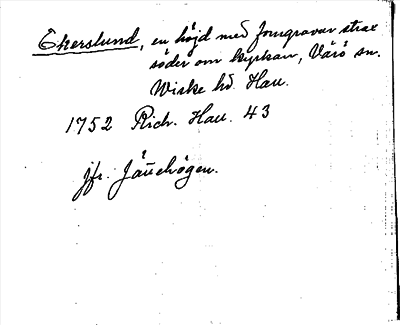 Ekerslund, en höjd med forngravar strax
söder om kyrkan, Värö sn.
Wiske hd. Hall.
1752 Rich. Hall. 43
jfr. Jällehögen.